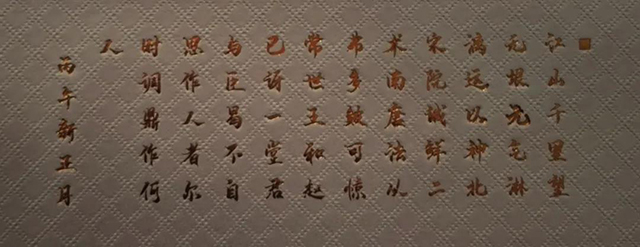 江山千里望
无垠元气淋
漓运以神北
宋院诚鲜二
术南唐法从
弗多皴可惊
常世王和赵
已讶一堂君
与臣曷不自
思作人者尔
时调鼎作何
人
丙午新正月